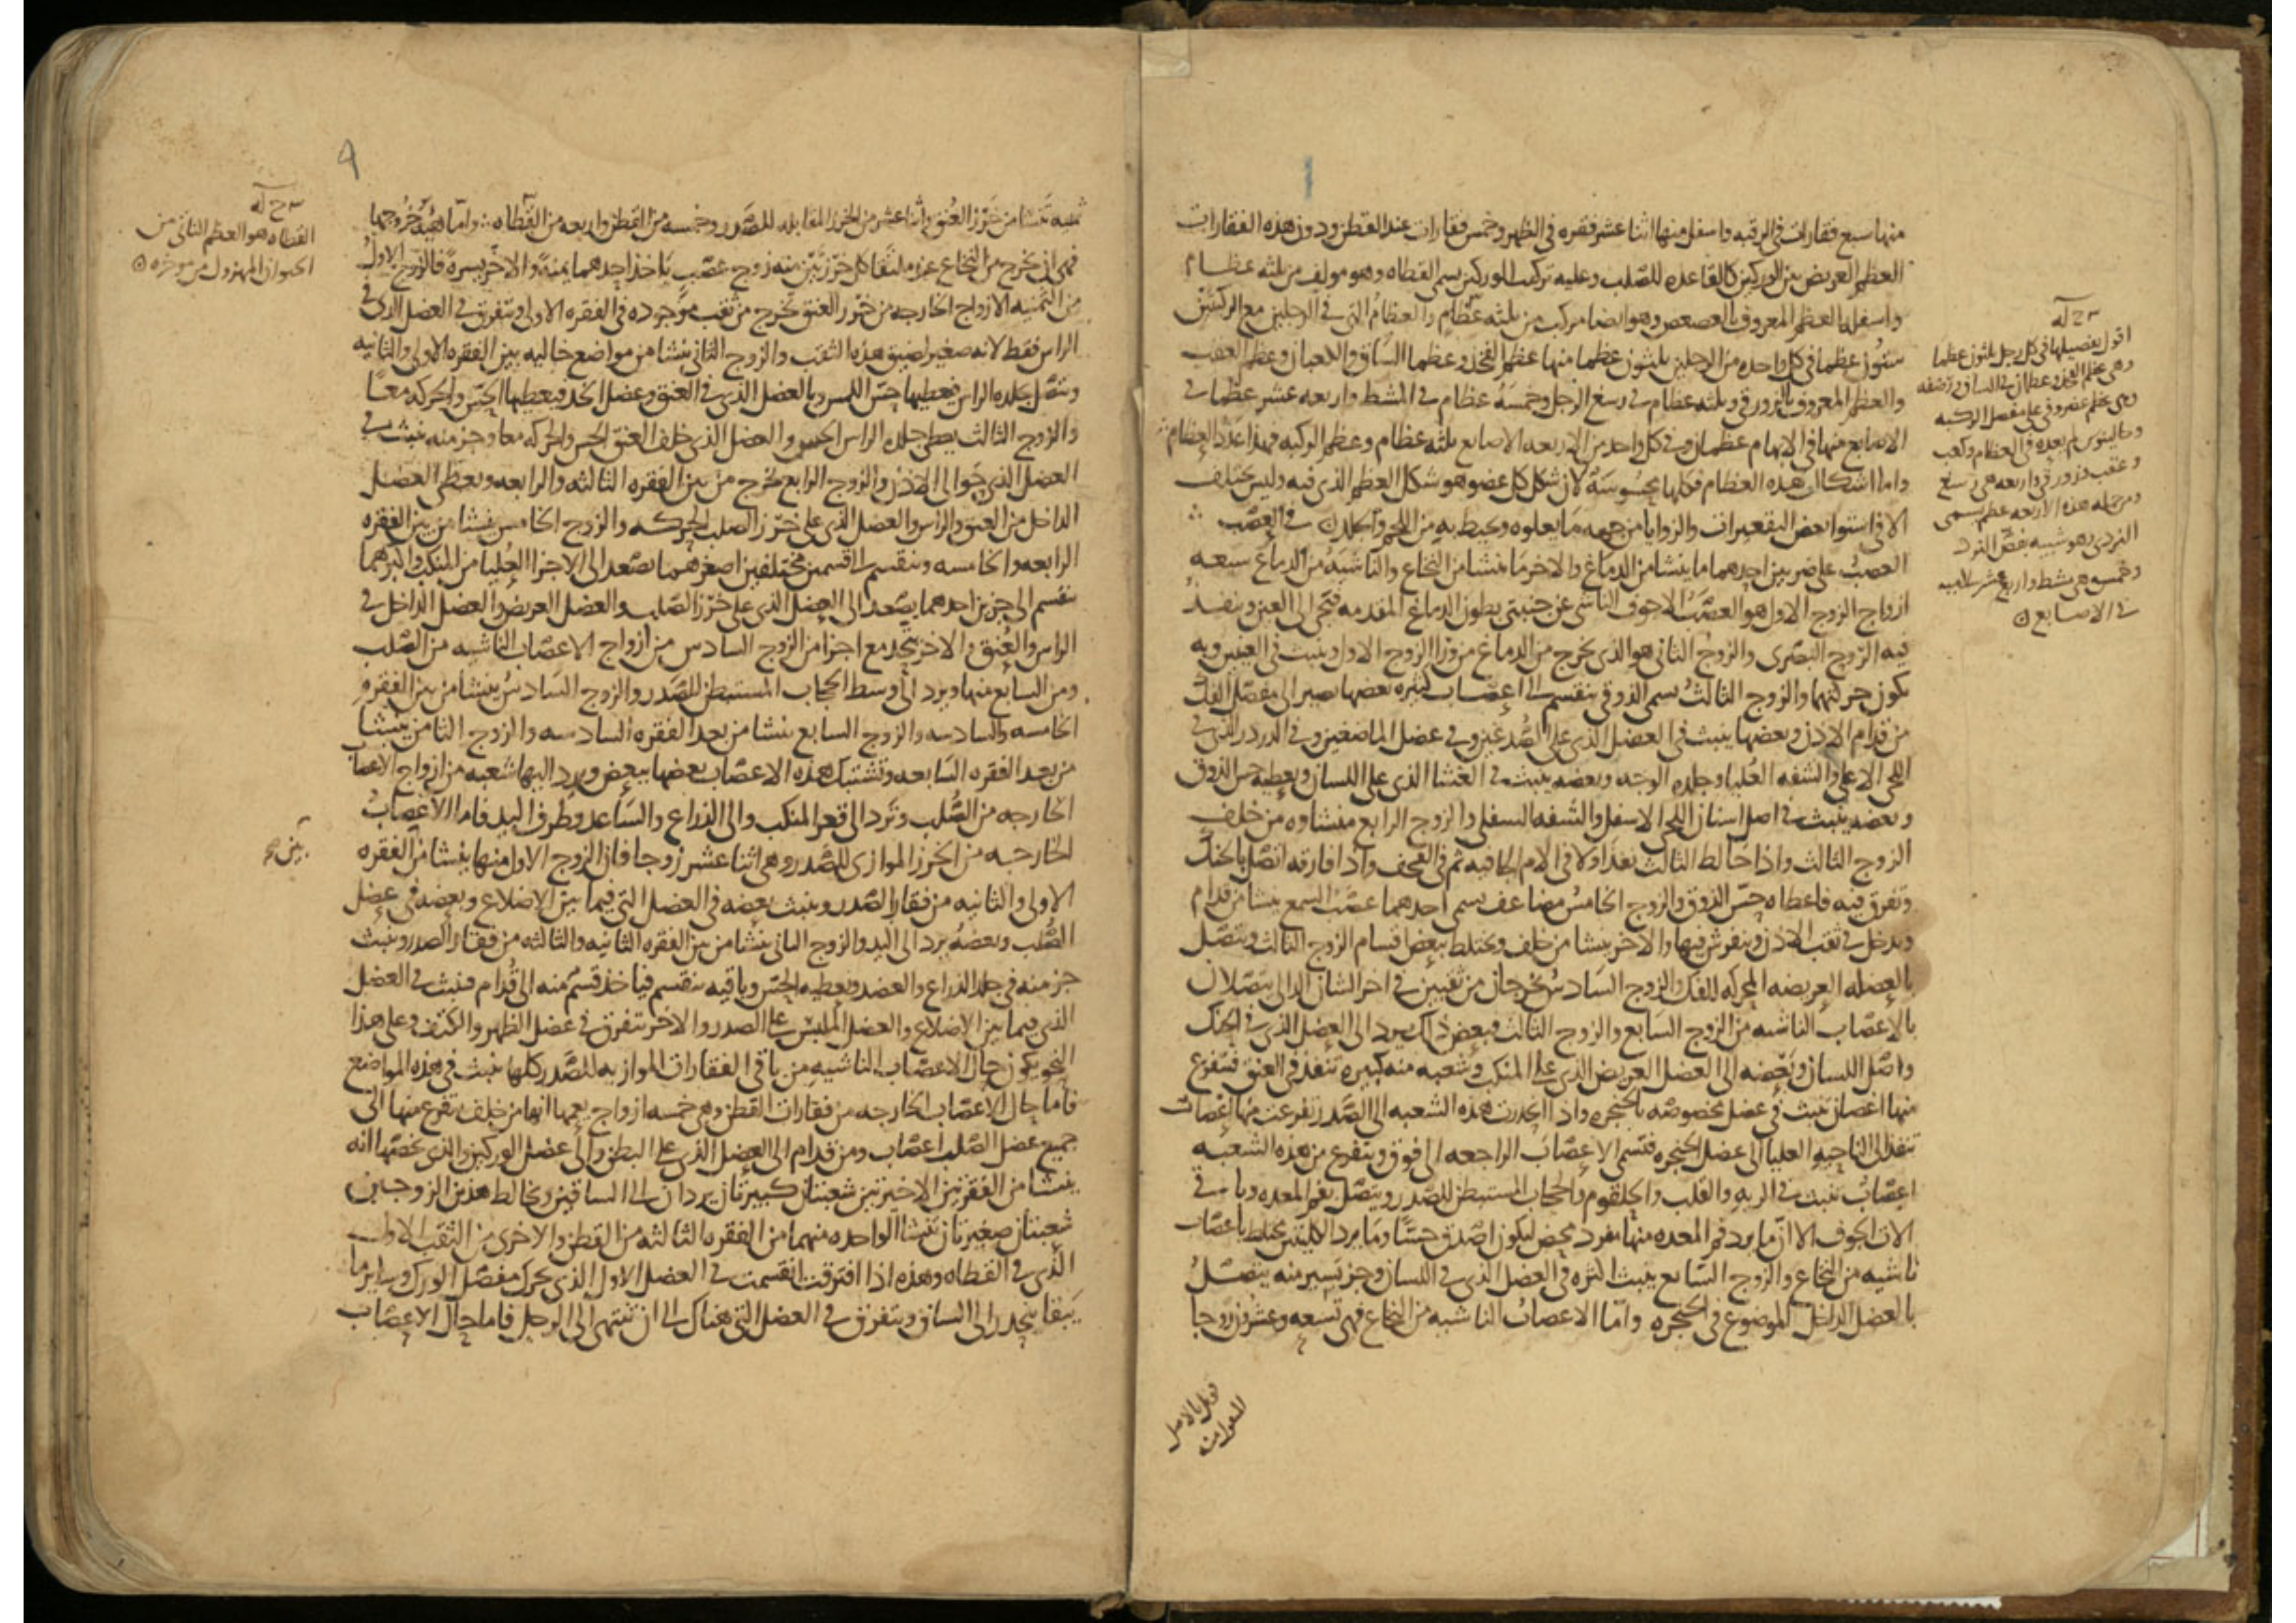 منها سبع فقارات في الرقبه واسفل منها اثنا عشر فقره في الظهر وخمس فقارات عند القطن ودون هذه الفقارات
العظم العريض بين الوركين كالقاعده للصلب وعليه تركيب الوركين يسمى القطاه وهو مولف من ثلثه عظام
واسفلها العظم المعروف بالعصعص وهو ايضا مركب من ثلثه عظام والعظام التي في الرجلين مع الركبتين
ستون عظما في كل واحده من الرجلين ثلثون عظما منها عظم الفخذ وعظما الساق والكعبان وعظم العقب
والعظم المعروف بالزورقي وثلثه عظام في رسغ الرجل وخمسه عظام في المشط واربعه عشر عظما في
الاصابع منها في الابهام عظمان وفي كل واحد من الاربعه الاصابع ثلثه عظام وعظم الركبه فهذا عدد العظام
واما اشكال هذه العظام فكلها محسوسه لان شكل كل عضو هو شكل العظم الذي فيه وليس يختلف
الا في استوا بعض التقعيرات والزوايا من جهه ما يعلوه ويحيط به من اللحم والجلد في العصب
العصب على ضربين احدهما ما ينشا من الدماغ والاخر ما ينشا من النخاع والناشيه من الدماغ سبعه
ازواج الزوج الاول هو العصب الاجوف الناشي عن جنبتي بطون الدماغ المقدمه فتجي الى العين وينفذ
فيه الروح البصرى والزوج الثاني هو الذي يخرج من الدماغ من ورا الزوج الاول وينبث في العينين وبه
يكون حركتهما والزوج الثالث يسمى الذوقي ينقسم الى اعصاب كثيره بعضها يصير الى مفصل الفك
من قدام الاذن وبعضها ينبث في العضل الذي على الصدغين وفي عضل الماضغين وفي الدردر الذي في
اللحى الاعلى والشفه العليا وجلده الوجه وبعضه ينبث في الغشا الذي على اللسان ويعطيه حس الذوق
وبعضه ينبث في اصل اسنان اللحى الاسفل والشفه السفلى والزوج الرابع منشاوه من خلف
الزوج الثالث واذا خالط الثالث نفذا ولا في الام الجافيه ثم في القحف واذا فارقه اتصل بالحنك
وتفرق فيه فاعطاه حس الذوق والزوج الخامس مضاعف يسمى احدهما عصب السمع ينشا من قدام
ويدخل في ثقب الاذن وينفرش فيها والاخر ينشا من خلف ويختلط ببعض اقسام الزوج الثالث ويتصل
بالعضله العريضه المحركه للفك والزوج السادس يخرجان من ثقبين في اخر الشان الدالى يتصلان
بالاعصاب الناشيه من الزوج السابع والزوج الثالث فبعض ذلك يرد الى العضل الذي في الحنك
واصل اللسان وبعضه الى العضل العريض الذي على المنكب وشعبه منه كبيره تنفذ في العنق فتفرع
منها اغصان تنبث في عضل مخصوصه بالحنجره واذا انحدرت هذه الشعبه الى الصدر تفرعت منها اغصان
تنفذ الى الناحيه العليا الى عضل الحنجره فتسمى الاعصاب الراجعه الى فوق ويتفرع من هذه الشعبه
اعصاب تنبث في الريه والقلب والحلقوم والحجاب المستبطن للصدر ويتصل بفم المعده وباقي
الات الجوف الا ان ما يرد فم المعده منها مفرد محض ليكون اصدق حسا وما يرد الكليتين يختلط باعصاب
ناشيه من النخاع والزوج السابع ينبث اكثره في العضل الذي في اللسان وجز يسير منه يتصل
بالعضل الداخل الموضوع في الحنجره واما الاعصاب الناشيه من النخاع فهي تسعه وعشرون زوجا
اقول تفصيلها في كل رجل ثلثون عظما
وهي عظم الفخذ وعظمان في الساق ورضفه
وهي عظم غضروفي على مفصل الركبه
وجالينوس لم يعده في العظام وكعب
وعقب وزورقي واربعه هي رسغ
ومن جمله هذه الاربعه عظم يسمى
النردي وهو شبيه بفص النرد
وخمسه هي مشط واربع عشر سلاميه
في الاصابع
قوبل بالاصل
المنقول منه
٩
ثمنيه تنشا من خرز العنق واثنا عشر من الخرز المقابله للصدر وخمسه من القطن واربعه من القطاه واما هيئه خروجها
فهي ان يخرج من النخاع عند ملتقا كل خرزتين منه زوج عصب ياخذ احدهما يمنة والاخر يسرة فالزوج الاول
من الثمنيه الازواج الخارجه من خرز العنق يخرج من ثقب موجوده في الفقره الاولى ويتفرق في العضل الذي في
الراس فقط لانه صغير لضيق هذه الثقب والزوج الثاني ينشا من مواضع خاليه بين الفقره الاولى والثانيه
ويتصل بجلده الراس فيعطيها حس اللمس وبالعضل الذي في العنق وعضل الخد فيعطيها الحس والحركه معا
والزوج الثالث يعطي جلده الراس الحس والعضل الذي خلف العنق الحس والحركه معا وجز منه ينبث في
العضل الذي حوالى الاذن والزوج الرابع يخرج من بين الفقره الثالثه والرابعه ويعطي العضل
الداخل من العنق والراس والعضل الذي على خرز الصلب الحركه والزوج الخامس ينشا من بين الفقره
الرابعه والخامسه وينقسم الى قسمين مختلفين اصغرهما يصعد الى الاجزا العليا من المنكب واكبرهما
ينقسم الى جزين احدهما يصعد الى العضل الذي على خرز الصلب والعضل العريض والعضل الداخل في
الراس والعنق والاخر يتحد مع اجزا من الزوج السادس من ازواج الاعصاب الناشيه من الصلب
ومن السابع منها ويرد الى وسط الحجاب المستبطن للصدر والزوج السادس ينشا من بين الفقره
الخامسه والسادسه والزوج السابع ينشا من بعد الفقره السادسه والزوج الثامن ينشا
من بعد الفقره السابعه وتشتبك هذه الاعصاب بعضها ببعض ويرد اليها شعبه من ازواج الاعصاب
الخارجه من الصلب وترد الى قعر المنكب والى الذراع والساعد وطرف اليد فاما الاعصاب
الخارجه من الخرز الموازى للصدر وهي اثنا عشر زوجا فان الزوج الاول منها ينشا من الفقره
الاولى والثانيه من فقار الصدر وينبث بعضه في العضل التي فيما بين الاضلاع وبعضه في عضل
الصلب وبعضه يرد الى اليد والزوج الثاني ينشا من بين الفقره الثانيه والثالثه من فقار الصدر وينبث
جز منه في جلد الذراع والعضد ويعطيه الحس وباقيه ينقسم فياخذ قسم منه الى قدام فينبث في العضل
الذي فيما بين الاضلاع والعضل الملبس على الصدر والاخر يتفرق في عضل الظهر والكتف وعلى هذا
النحو يكون حال الاعصاب الناشيه من باقي الفقارات الموازيه للصدر كلها ينبث في هذه المواضع
فاما حال الاعصاب الخارجه من فقارات القطن وهي خمسه ازواج يعمها انها من خلف يتفرع منها الى
جميع عضل الصلب اعصاب ومن قدام الى العضل الذي على البطن والى عضل الوركين والذي يخصها انه
ينشا من الفقرتين الاخيرتين شعبتان كبيرتان يردان الى الساقين ويخالط هذين الزوجين
شعبتان صغيرتان تنشا الواحده منهما من الفقره الثالثه من القطن والاخرى من الثقب الاول
الذي في القطاه وهذه اذا افترقت انقسمت في العضل الاول الذي يحرك مفصل الورك وساير ما
يبقا ينحدر الى الساق ويتفرق في العضل التي هناك الى ان تنتهى الى الرجل فاما حال الاعصاب
القطاه هو العظم الناتى من
الحيوان المهزول من موخره
بين صح